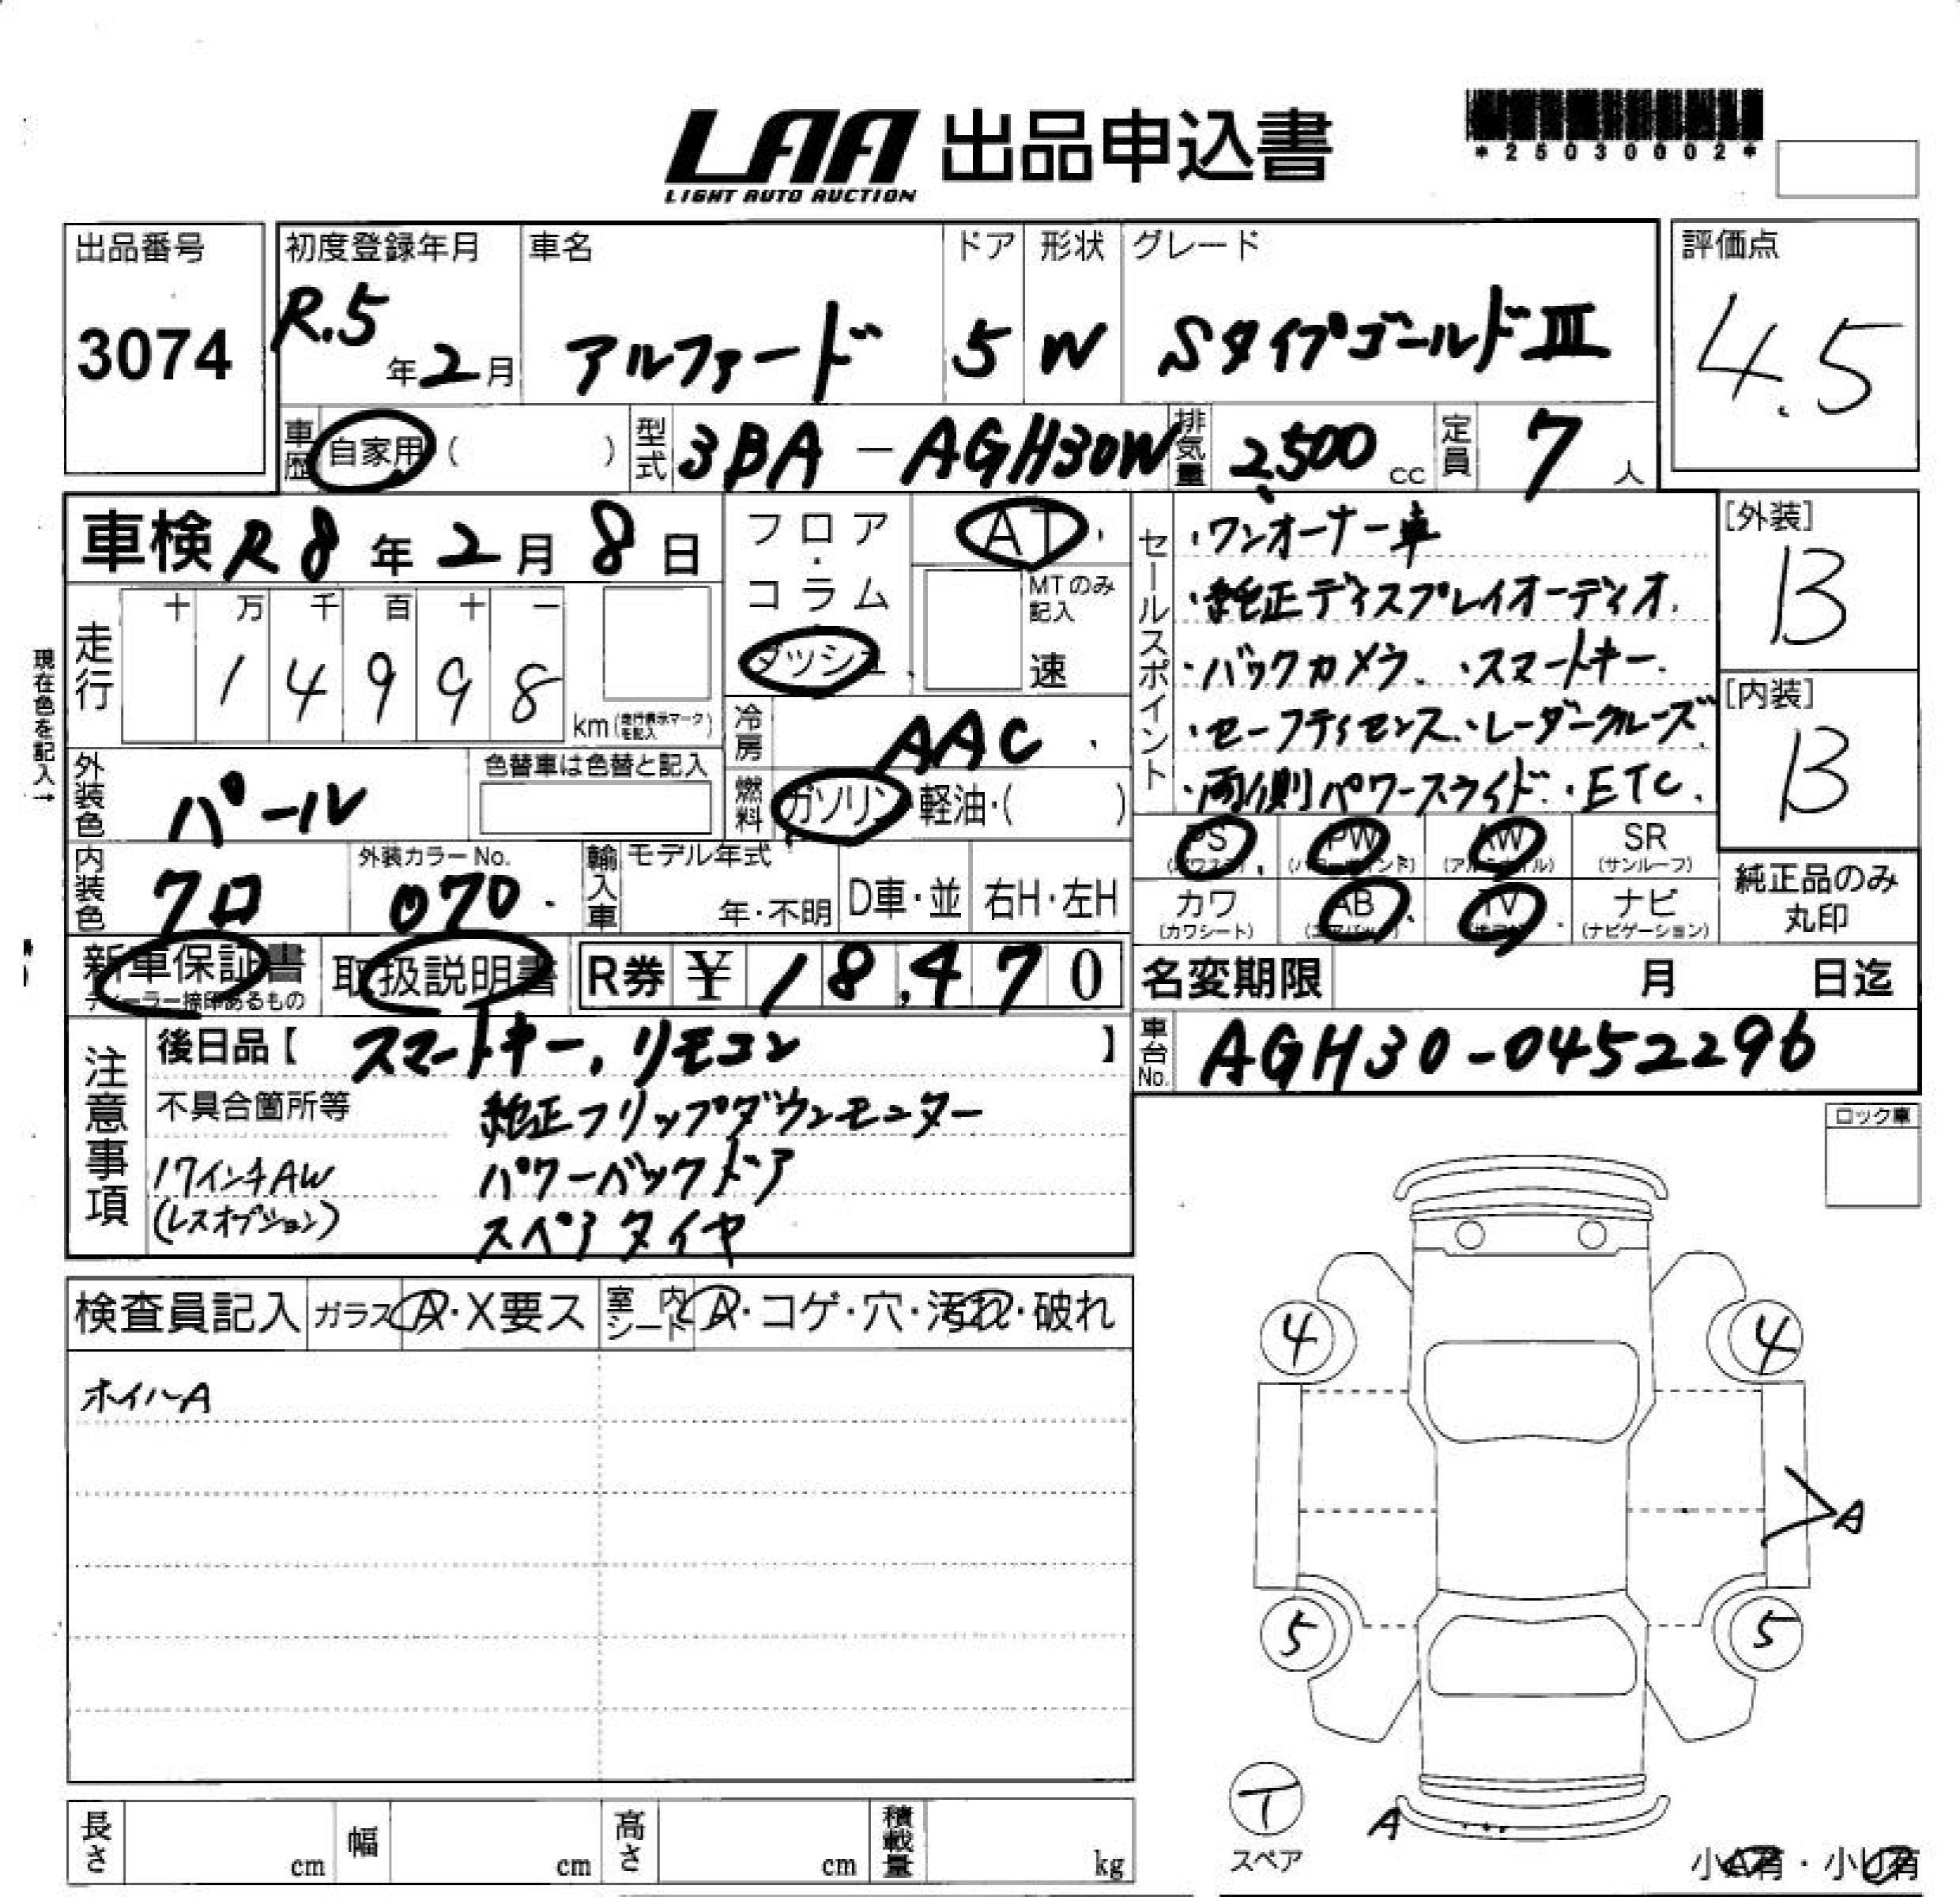 LAA 出品申込書
LIGHT AUTO AUCTION
*25030002*
出品番号
3074
初度登録年月
R.5年2月
車名
アルファード
ドア
5
形状
W
グレード
SタイプゴールドIII
評価点
4.5
車歴 自家用 ( )
型式 3BA-AGH30W
排気量 2,500 cc
定員 7人
車検 R8年2月8日
フロア・コラム
ダッシュ
AT
MTのみ記入
速
走行
十 万 千 百 十 一
1 4 9 9 8
km(走行表示マークを記入)
現在色を記入→
冷房 AAC
燃料 ガソリン・軽油・( )
外装色 パール
色替車は色替と記入
内装色 クロ
外装カラーNo.
070
輸入車
モデル年式
年・不明
D車・並
右H・左H
セールスポイント
・ワンオーナー車
・純正ディスプレイオーディオ
・バックカメラ ・スマートキー
・セーフティセンス・レーダークルーズ
・両側パワースライド ・ETC
[外装]
B
[内装]
B
PS
PW
AW
SR
(サンルーフ)
カワ
(カワシート)
AB
(エアバック)
TV
ナビ
(ナビゲーション)
純正品のみ
丸印
新車保証書
ディーラー捺印あるもの
取扱説明書
R券 ¥ 18,470
名変期限 月 日迄
車台No. AGH30-0452296
注意事項
後日品【 スマートキー, リモコン 】
不具合箇所等
純正フリップダウンモニター
17インチAW
パワーバックドア
(レスオプション)
スペアタイヤ
ロック車
検査員記入
ガラス A・X要ス
室内シート A・コゲ・穴・汚れ・破れ
ホイルA
4
4
A
5
5
T
スペア
A
小A有・小U有
長さ cm
幅 cm
高さ cm
積載量 kg